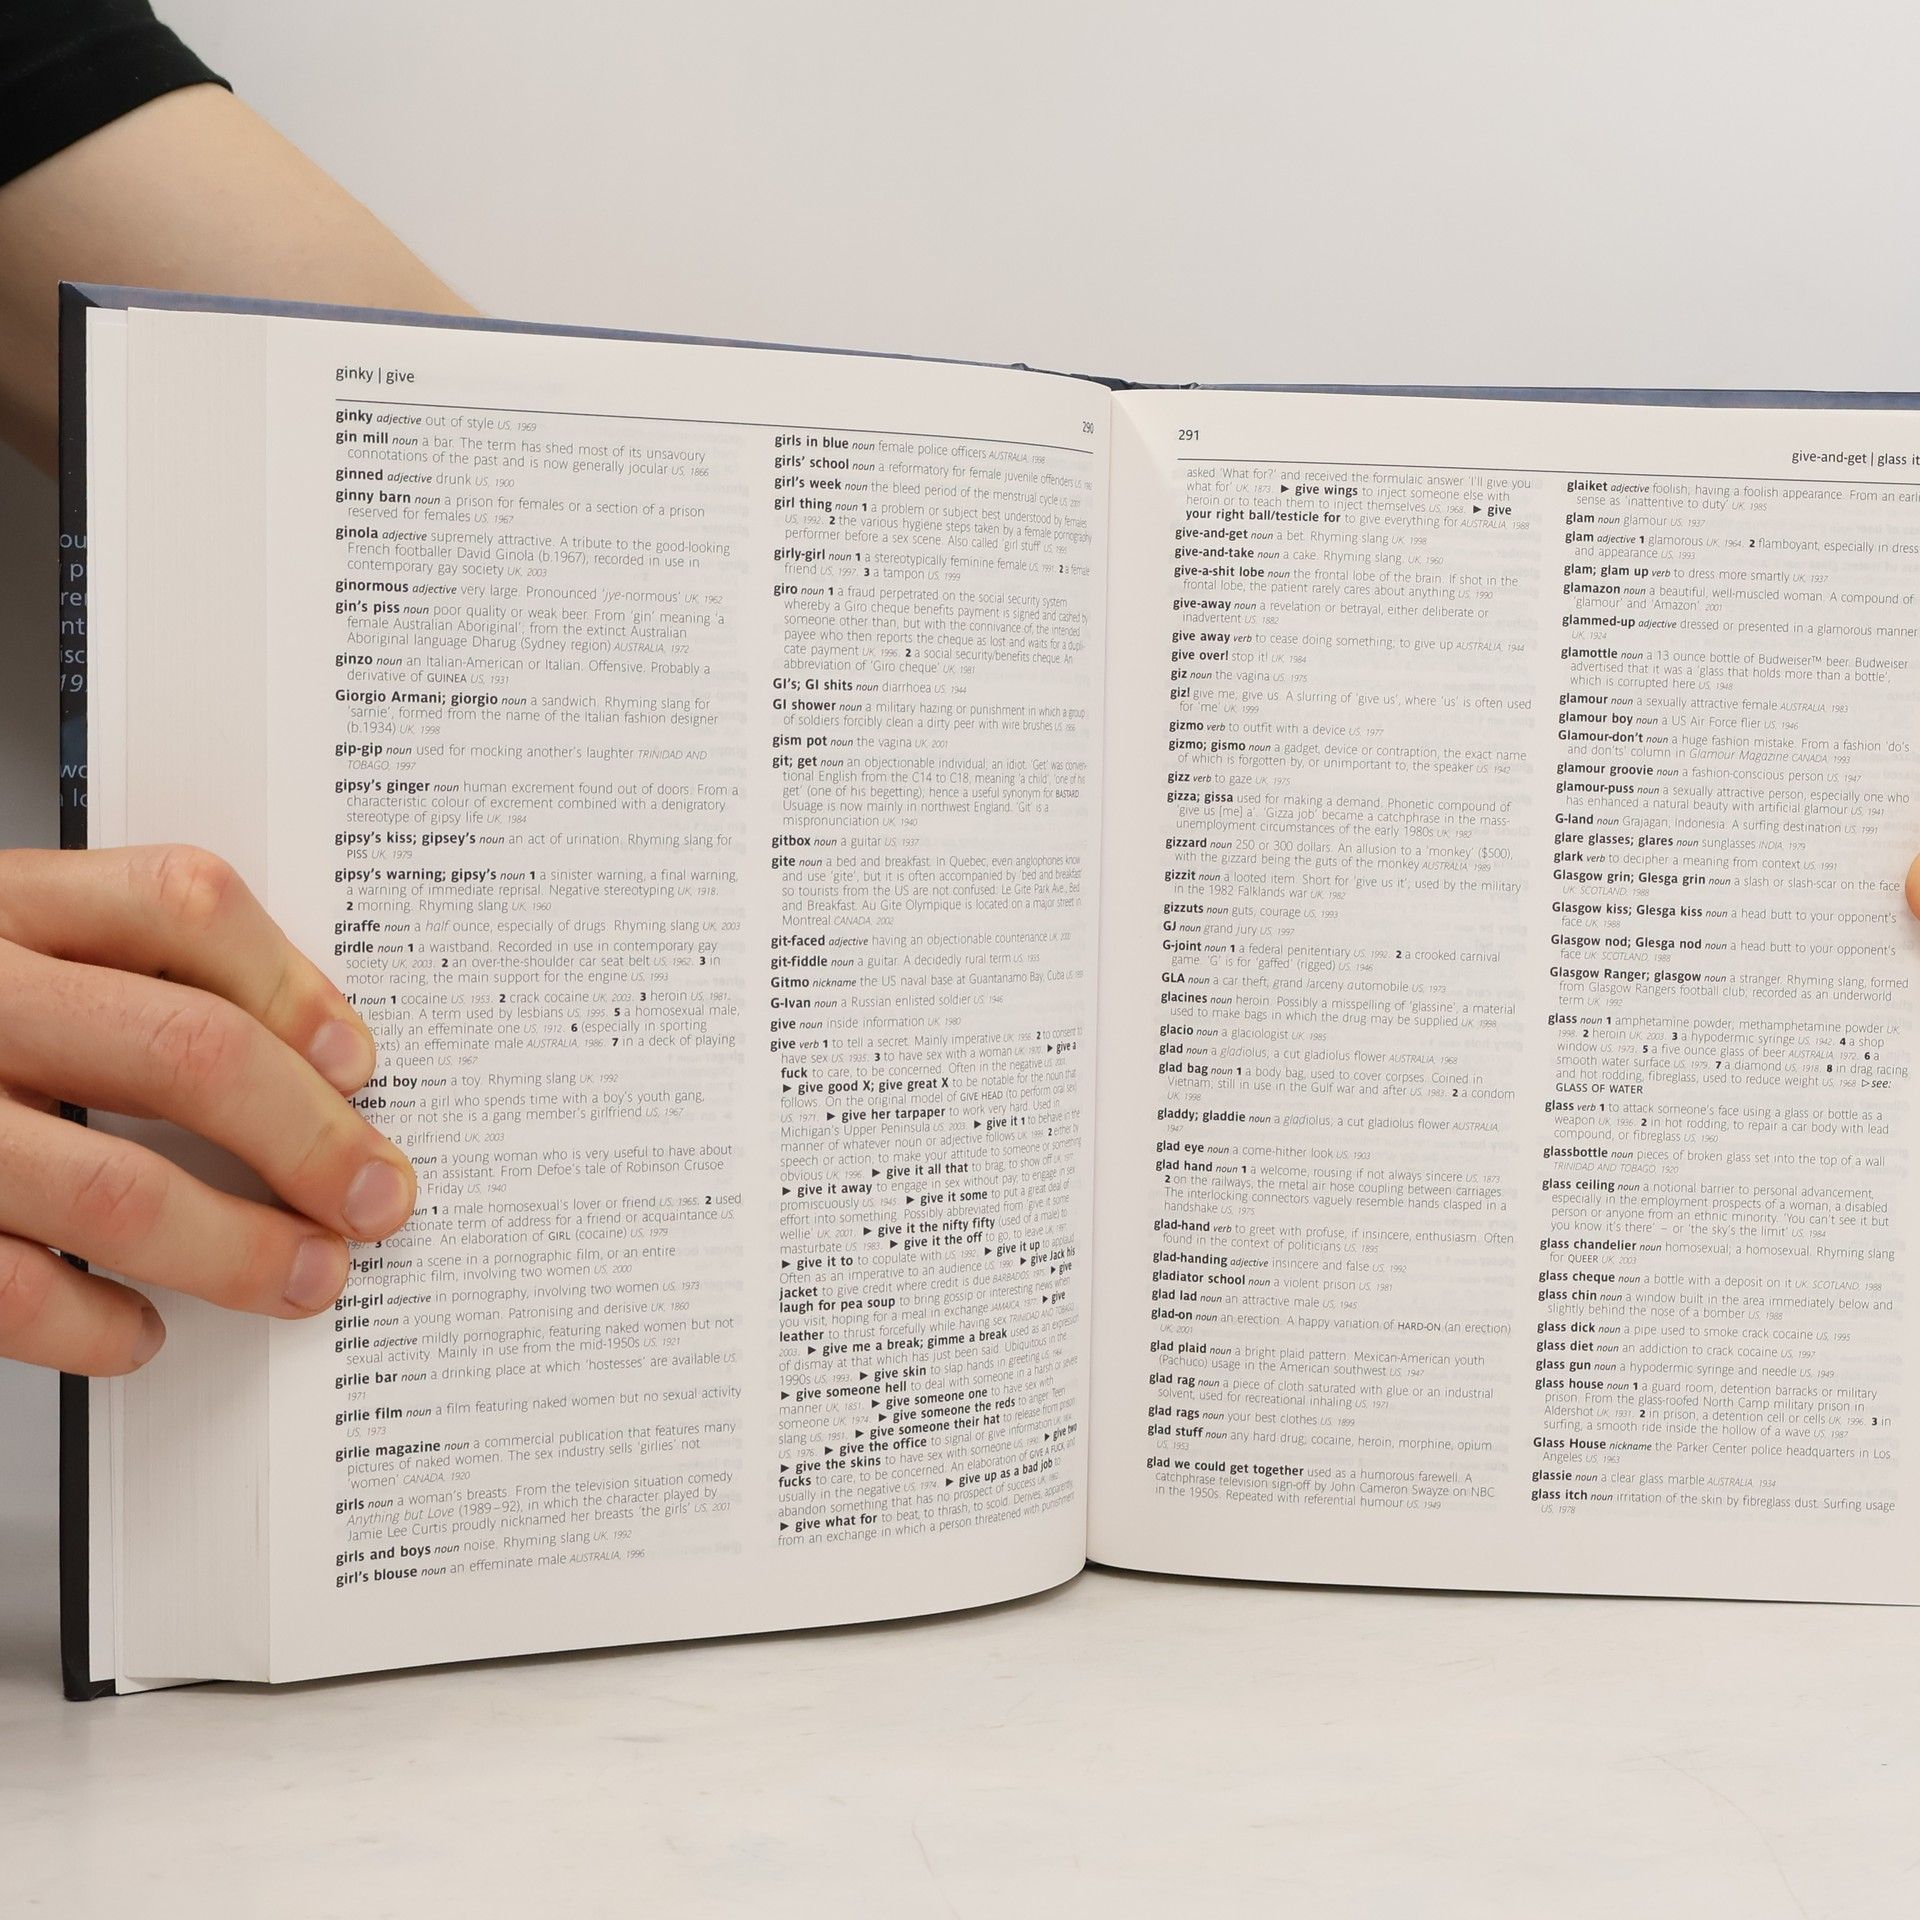 ginky | give
ginky adjective out of style US, 1969
gin mill noun a bar. The term has shed most of its unsavoury
connotations of the past and is now generally jocular US, 1866
ginned adjective drunk US, 1900
ginny barn noun a prison for females or a section of a prison
reserved for females US, 1967
ginola adjective supremely attractive. A tribute to the good-looking
French footballer David Ginola (b.1967), recorded in use in
contemporary gay society UK, 2003
ginormous adjective very large. Pronounced 'jye-normous' UK, 1962
gin's piss noun poor quality or weak beer. From 'gin' meaning 'a
female Australian Aboriginal'; from the extinct Australian
Aboriginal language Dharug (Sydney region) AUSTRALIA, 1972
ginzo noun an Italian-American or Italian. Offensive. Probably a
derivative of GUINEA US, 1931
Giorgio Armani; giorgio noun a sandwich. Rhyming slang for
'sarnie', formed from the name of the Italian fashion designer
(b.1934) UK, 1998
gip-gip noun used for mocking another's laughter TRINIDAD AND
TOBAGO, 1997
gipsy's ginger noun human excrement found out of doors. From a
characteristic colour of excrement combined with a denigratory
stereotype of gipsy life UK, 1984
gipsy's kiss; gipsey's noun an act of urination. Rhyming slang for
PISS UK, 1979
gipsy's warning; gipsy's noun 1 a sinister warning, a final warning,
a warning of immediate reprisal. Negative stereotyping UK, 1918.
2 morning. Rhyming slang UK, 1960
giraffe noun a half ounce, especially of drugs. Rhyming slang UK, 2003
girdle noun 1 a waistband. Recorded in use in contemporary gay
society UK, 2003. 2 an over-the-shoulder car seat belt US, 1962. 3 in
motor racing, the main support for the engine US, 1993
irl noun 1 cocaine US, 1953. 2 crack cocaine UK, 2003. 3 heroin US, 1981.
a lesbian. A term used by lesbians US, 1995. 5 a homosexual male,
ecially an effeminate one US, 1912. 6 (especially in sporting
exts) an effeminate male AUSTRALIA, 1986. 7 in a deck of playing
, a queen US, 1967
and boy noun a toy. Rhyming slang UK, 1992
l-deb noun a girl who spends time with a boy's youth gang,
ether or not she is a gang member's girlfriend US, 1967
a girlfriend UK, 2003
noun a young woman who is very useful to have about
an assistant. From Defoe's tale of Robinson Crusoe
Friday US, 1940
un 1 a male homosexual's lover or friend US, 1965. 2 used
ctionate term of address for a friend or acquaintance US,
1997. 3 cocaine. An elaboration of GIRL (cocaine) US, 1979
rl-girl noun a scene in a pornographic film, or an entire
pornographic film, involving two women US, 2000
girl-girl adjective in pornography, involving two women US, 1973
girlie noun a young woman. Patronising and derisive UK, 1860
girlie adjective mildly pornographic, featuring naked women but not
sexual activity. Mainly in use from the mid-1950s US, 1921
girlie bar noun a drinking place at which 'hostesses' are available US,
1971
girlie film noun a film featuring naked women but no sexual activity
US, 1973
girlie magazine noun a commercial publication that features many
pictures of naked women. The sex industry sells 'girlies' not
'women' CANADA, 1920
girls noun a woman's breasts. From the television situation comedy
Anything but Love (1989–92), in which the character played by
Jamie Lee Curtis proudly nicknamed her breasts 'the girls' US, 2001
girls and boys noun noise. Rhyming slang UK, 1992
girl's blouse noun an effeminate male AUSTRALIA, 1996
290
girls in blue noun female police officers AUSTRALIA, 1998
girls' school noun a reformatory for female juvenile offenders US,
girl's week noun the bleed period of the menstrual cycle US, 2001
girl thing noun 1 a problem or subject best understood by females
US, 1992. 2 the various hygiene steps taken by a female pornography
performer before a sex scene. Also called 'girl stuff' US, 1995
girly-girl noun 1 a stereotypically feminine female US, 1991. 2 a female
friend US, 1997. 3 a tampon US, 1999
giro noun 1 a fraud perpetrated on the social security system
whereby a Giro cheque benefits payment is signed and cashed by
someone other than, but with the connivance of, the intended
payee who then reports the cheque as lost and waits for a dupli-
cate payment UK, 1996. 2 a social security/benefits cheque. An
abbreviation of 'Giro cheque' UK, 1981
GI's; GI shits noun diarrhoea US, 1944
GI shower noun a military hazing or punishment in which a group
of soldiers forcibly clean a dirty peer with wire brushes US,
gism pot noun the vagina UK, 2001
git; get noun an objectionable individual; an idiot. 'Get' was conven-
tional English from the C14 to C18, meaning 'a child', 'one of his
get' (one of his begetting); hence a useful synonym for BASTARD.
Usuage is now mainly in northwest England. 'Git' is a
mispronunciation UK, 1940
gitbox noun a guitar US, 1937
gite noun a bed and breakfast. In Quebec, even anglophones know
and use 'gite', but it is often accompanied by 'bed and breakfast'
so tourists from the US are not confused: Le Gite Park Ave., Bed
and Breakfast. Au Gite Olympique is located on a major street in
Montreal CANADA, 2002
git-faced adjective having an objectionable countenance UK,
git-fiddle noun a guitar. A decidedly rural term US, 1935
Gitmo nickname the US naval base at Guantanamo Bay, Cuba US,
G-Ivan noun a Russian enlisted soldier US, 1946
give noun inside information UK, 1980
give verb 1 to tell a secret. Mainly imperative UK, 1956. 2 to consent to
have sex US, 1935. 3 to have sex with a woman UK, 1970. ▶ give a
fuck to care, to be concerned. Often in the negative US, 2001.
▶ give good X; give great X to be notable for the noun that
follows. On the original model of GIVE HEAD (to perform oral sex)
US, 1971. ▶ give her tarpaper to work very hard. Used in
Michigan's Upper Peninsula US, 2003. ▶ give it 1 to behave in the
manner of whatever noun or adjective follows UK, 1999. 2 either by
speech or action, to make your attitude to someone or something
obvious UK, 1996. ▶ give it all that to brag, to show off UK,
▶ give it away to engage in sex without pay; to engage in sex
promiscuously US, 1945. ▶ give it some to put a great deal of
effort into something. Possibly abbreviated from 'give it some
wellie' UK, 2001. ▶ give it the nifty fifty (used of a male) to
masturbate US, 1983. ▶ give it the off to go, to leave UK, 1997.
▶ give it to to copulate with US, 1992. ▶ give it up to applaud.
Often as an imperative to an audience US, 1990. ▶ give Jack his
jacket to give credit where credit is due BARBADOS, 1975. ▶ give
laugh for pea soup to bring gossip or interesting news when
you visit, hoping for a meal in exchange JAMAICA, 1977. ▶ give
leather to thrust forcefully while having sex TRINIDAD AND TOBAGO,
2003. ▶ give me a break; gimme a break used as an expression
of dismay at that which has just been said. Ubiquitous in the
1990s US, 1993. ▶ give skin to slap hands in greeting US, 1964.
▶ give someone hell to deal with someone in a harsh or severe
manner UK, 1851. ▶ give someone one to have sex with
someone UK, 1974. ▶ give someone the reds to anger. Teen
slang US, 1951. ▶ give someone their hat to release from prison
US, 1976. ▶ give the office to signal or give information UK, 1804.
▶ give the skins to have sex with someone US, 1990. ▶ give two
fucks to care, to be concerned. An elaboration of GIVE A FUCK, and
usually in the negative US, 1974. ▶ give up as a bad job to
abandon something that has no prospect of success UK, 1862.
▶ give what for to beat, to thrash, to scold. Derives, apparently,
from an exchange in which a person threatened with punishment
291
give-and-get | glass it
asked 'What for?' and received the formulaic answer 'I'll give you
what for' UK, 1873. ▶ give wings to inject someone else with
heroin or to teach them to inject themselves US, 1968. ▶ give
your right ball/testicle for to give everything for AUSTRALIA, 1988
give-and-get noun a bet. Rhyming slang UK, 1998
give-and-take noun a cake. Rhyming slang. UK, 1960
give-a-shit lobe noun the frontal lobe of the brain. If shot in the
frontal lobe, the patient rarely cares about anything US, 1990
give-away noun a revelation or betrayal, either deliberate or
inadvertent US, 1882
give away verb to cease doing something; to give up AUSTRALIA, 1944
give over! stop it! UK, 1984
giz noun the vagina US, 1975
giz! give me; give us. A slurring of 'give us', where 'us' is often used
for 'me' UK, 1999
gizmo verb to outfit with a device US, 1977
gizmo; gismo noun a gadget, device or contraption, the exact name
of which is forgotten by, or unimportant to, the speaker US, 1942
gizz verb to gaze UK, 1975
gizza; gissa used for making a demand. Phonetic compound of
'give us [me] a'. 'Gizza job' became a catchphrase in the mass-
unemployment circumstances of the early 1980s UK, 1982
gizzard noun 250 or 300 dollars. An allusion to a 'monkey' ($500),
with the gizzard being the guts of the monkey AUSTRALIA, 1989
gizzit noun a looted item. Short for 'give us it'; used by the military
in the 1982 Falklands war UK, 1982
gizzuts noun guts, courage US, 1993
GJ noun grand jury US, 1997
G-joint noun 1 a federal penitentiary US, 1992. 2 a crooked carnival
game. 'G' is for 'gaffed' (rigged) US, 1946
GLA noun a car theft; grand larceny automobile US, 1973
glacines noun heroin. Possibly a misspelling of 'glassine', a material
used to make bags in which the drug may be supplied UK, 1998
glacio noun a glaciologist UK, 1985
glad noun a gladiolus; a cut gladiolus flower AUSTRALIA, 1968
glad bag noun 1 a body bag, used to cover corpses. Coined in
Vietnam; still in use in the Gulf war and after US, 1983. 2 a condom
UK, 1998
gladdy; gladdie noun a gladiolus; a cut gladiolus flower AUSTRALIA,
1947
glad eye noun a come-hither look US, 1903
glad hand noun 1 a welcome, rousing if not always sincere US, 1873.
2 on the railways, the metal air hose coupling between carriages.
The interlocking connectors vaguely resemble hands clasped in a
handshake US, 1975
glad-hand verb to greet with profuse, if insincere, enthusiasm. Often
found in the context of politicians US, 1895
glad-handing adjective insincere and false US, 1992
gladiator school noun a violent prison US, 1981
glad lad noun an attractive male US, 1945
glad-on noun an erection. A happy variation of HARD-ON (an erection)
UK, 2001
glad plaid noun a bright plaid pattern. Mexican-American youth
(Pachuco) usage in the American southwest US, 1947
glad rag noun a piece of cloth saturated with glue or an industrial
solvent, used for recreational inhaling US, 1971
glad rags noun your best clothes US, 1899
glad stuff noun any hard drug; cocaine, heroin, morphine, opium
US, 1953
glad we could get together used as a humorous farewell. A
catchphrase television sign-off by John Cameron Swayze on NBC
in the 1950s. Repeated with referential humour US, 1949
glaiket adjective foolish; having a foolish appearance. From an earli
sense as 'inattentive to duty' UK, 1985
glam noun glamour US, 1937
glam adjective 1 glamorous UK, 1964. 2 flamboyant, especially in dress
and appearance US, 1993
glam; glam up verb to dress more smartly UK, 1937
glamazon noun a beautiful, well-muscled woman. A compound of
'glamour' and 'Amazon'. 2001
glammed-up adjective dressed or presented in a glamorous manner
UK, 1924
glamottle noun a 13 ounce bottle of Budweiser™ beer. Budweiser
advertised that it was a 'glass that holds more than a bottle',
which is corrupted here US, 1948
glamour noun a sexually attractive female AUSTRALIA, 1983
glamour boy noun a US Air Force flier US, 1946
Glamour-don't noun a huge fashion mistake. From a fashion 'do's
and don'ts' column in Glamour Magazine CANADA, 1993
glamour groovie noun a fashion-conscious person US, 1947
glamour-puss noun a sexually attractive person, especially one who
has enhanced a natural beauty with artificial glamour US, 1941
G-land noun Grajagan, Indonesia. A surfing destination US, 1991
glare glasses; glares noun sunglasses INDIA, 1979
glark verb to decipher a meaning from context US, 1991
Glasgow grin; Glesga grin noun a slash or slash-scar on the face
UK: SCOTLAND, 1988
Glasgow kiss; Glesga kiss noun a head butt to your opponent's
face UK, 1988
Glasgow nod; Glesga nod noun a head butt to your opponent's
face UK: SCOTLAND, 1988
Glasgow Ranger; glasgow noun a stranger. Rhyming slang, formed
from Glasgow Rangers football club; recorded as an underworld
term UK, 1992
glass noun 1 amphetamine powder; methamphetamine powder UK,
1998. 2 heroin UK, 2003. 3 a hypodermic syringe US, 1942. 4 a shop
window US, 1973. 5 a five ounce glass of beer AUSTRALIA, 1972. 6 a
smooth water surface US, 1979. 7 a diamond US, 1918. 8 in drag racing
and hot rodding, fibreglass, used to reduce weight US, 1968 ▷ see:
GLASS OF WATER
glass verb 1 to attack someone's face using a glass or bottle as a
weapon UK, 1936. 2 in hot rodding, to repair a car body with lead
compound, or fibreglass US, 1960
glassbottle noun pieces of broken glass set into the top of a wall
TRINIDAD AND TOBAGO, 1920
glass ceiling noun a notional barrier to personal advancement,
especially in the employment prospects of a woman, a disabled
person or anyone from an ethnic minority. 'You can't see it but
you know it's there' – or 'the sky's the limit' US, 1984
glass chandelier noun homosexual; a homosexual. Rhyming slang
for QUEER UK, 2003
glass cheque noun a bottle with a deposit on it UK: SCOTLAND, 1988
glass chin noun a window built in the area immediately below and
slightly behind the nose of a bomber US, 1988
glass dick noun a pipe used to smoke crack cocaine US, 1995
glass diet noun an addiction to crack cocaine US, 1997
glass gun noun a hypodermic syringe and needle US, 1949
glass house noun 1 a guard room, detention barracks or military
prison. From the glass-roofed North Camp military prison in
Aldershot UK, 1931. 2 in prison, a detention cell or cells UK, 1996. 3 in
surfing, a smooth ride inside the hollow of a wave US, 1987
Glass House nickname the Parker Center police headquarters in Los
Angeles US, 1963
glassie noun a clear glass marble AUSTRALIA, 1934
glass itch noun irritation of the skin by fibreglass dust. Surfing usage
US, 1978